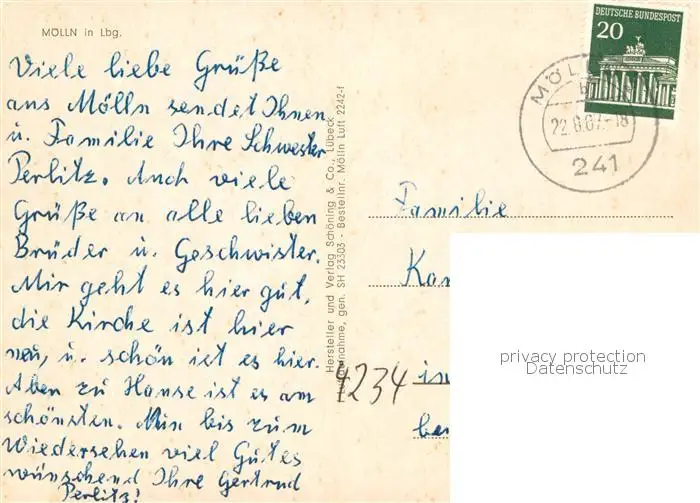 MÖLLN in Lbg.
Viele liebe Grüße
aus Mölln sendet Ihnen
u. Familie Ihre Schwester
Perlitz. Auch viele
Grüße an alle lieben
Brüder u. Geschwister.
Mir geht es hier gut,
die Kirche ist hier
neu, u. schön ist es hier.
Aber zu Hause ist es am
schönsten. Nun bis zum
Wiedersehen viel Gutes
wünschend Ihre Gertrud
Perlitz!
Hersteller und Verlag Schöning & Co., Lübeck
gen. SH 23303 - Bestellnr. Mölln Luft 2242-f
DEUTSCHE BUNDESPOST
20
22.8.67-18
241
Familie
4234 in
privacy protection
Datenschutz